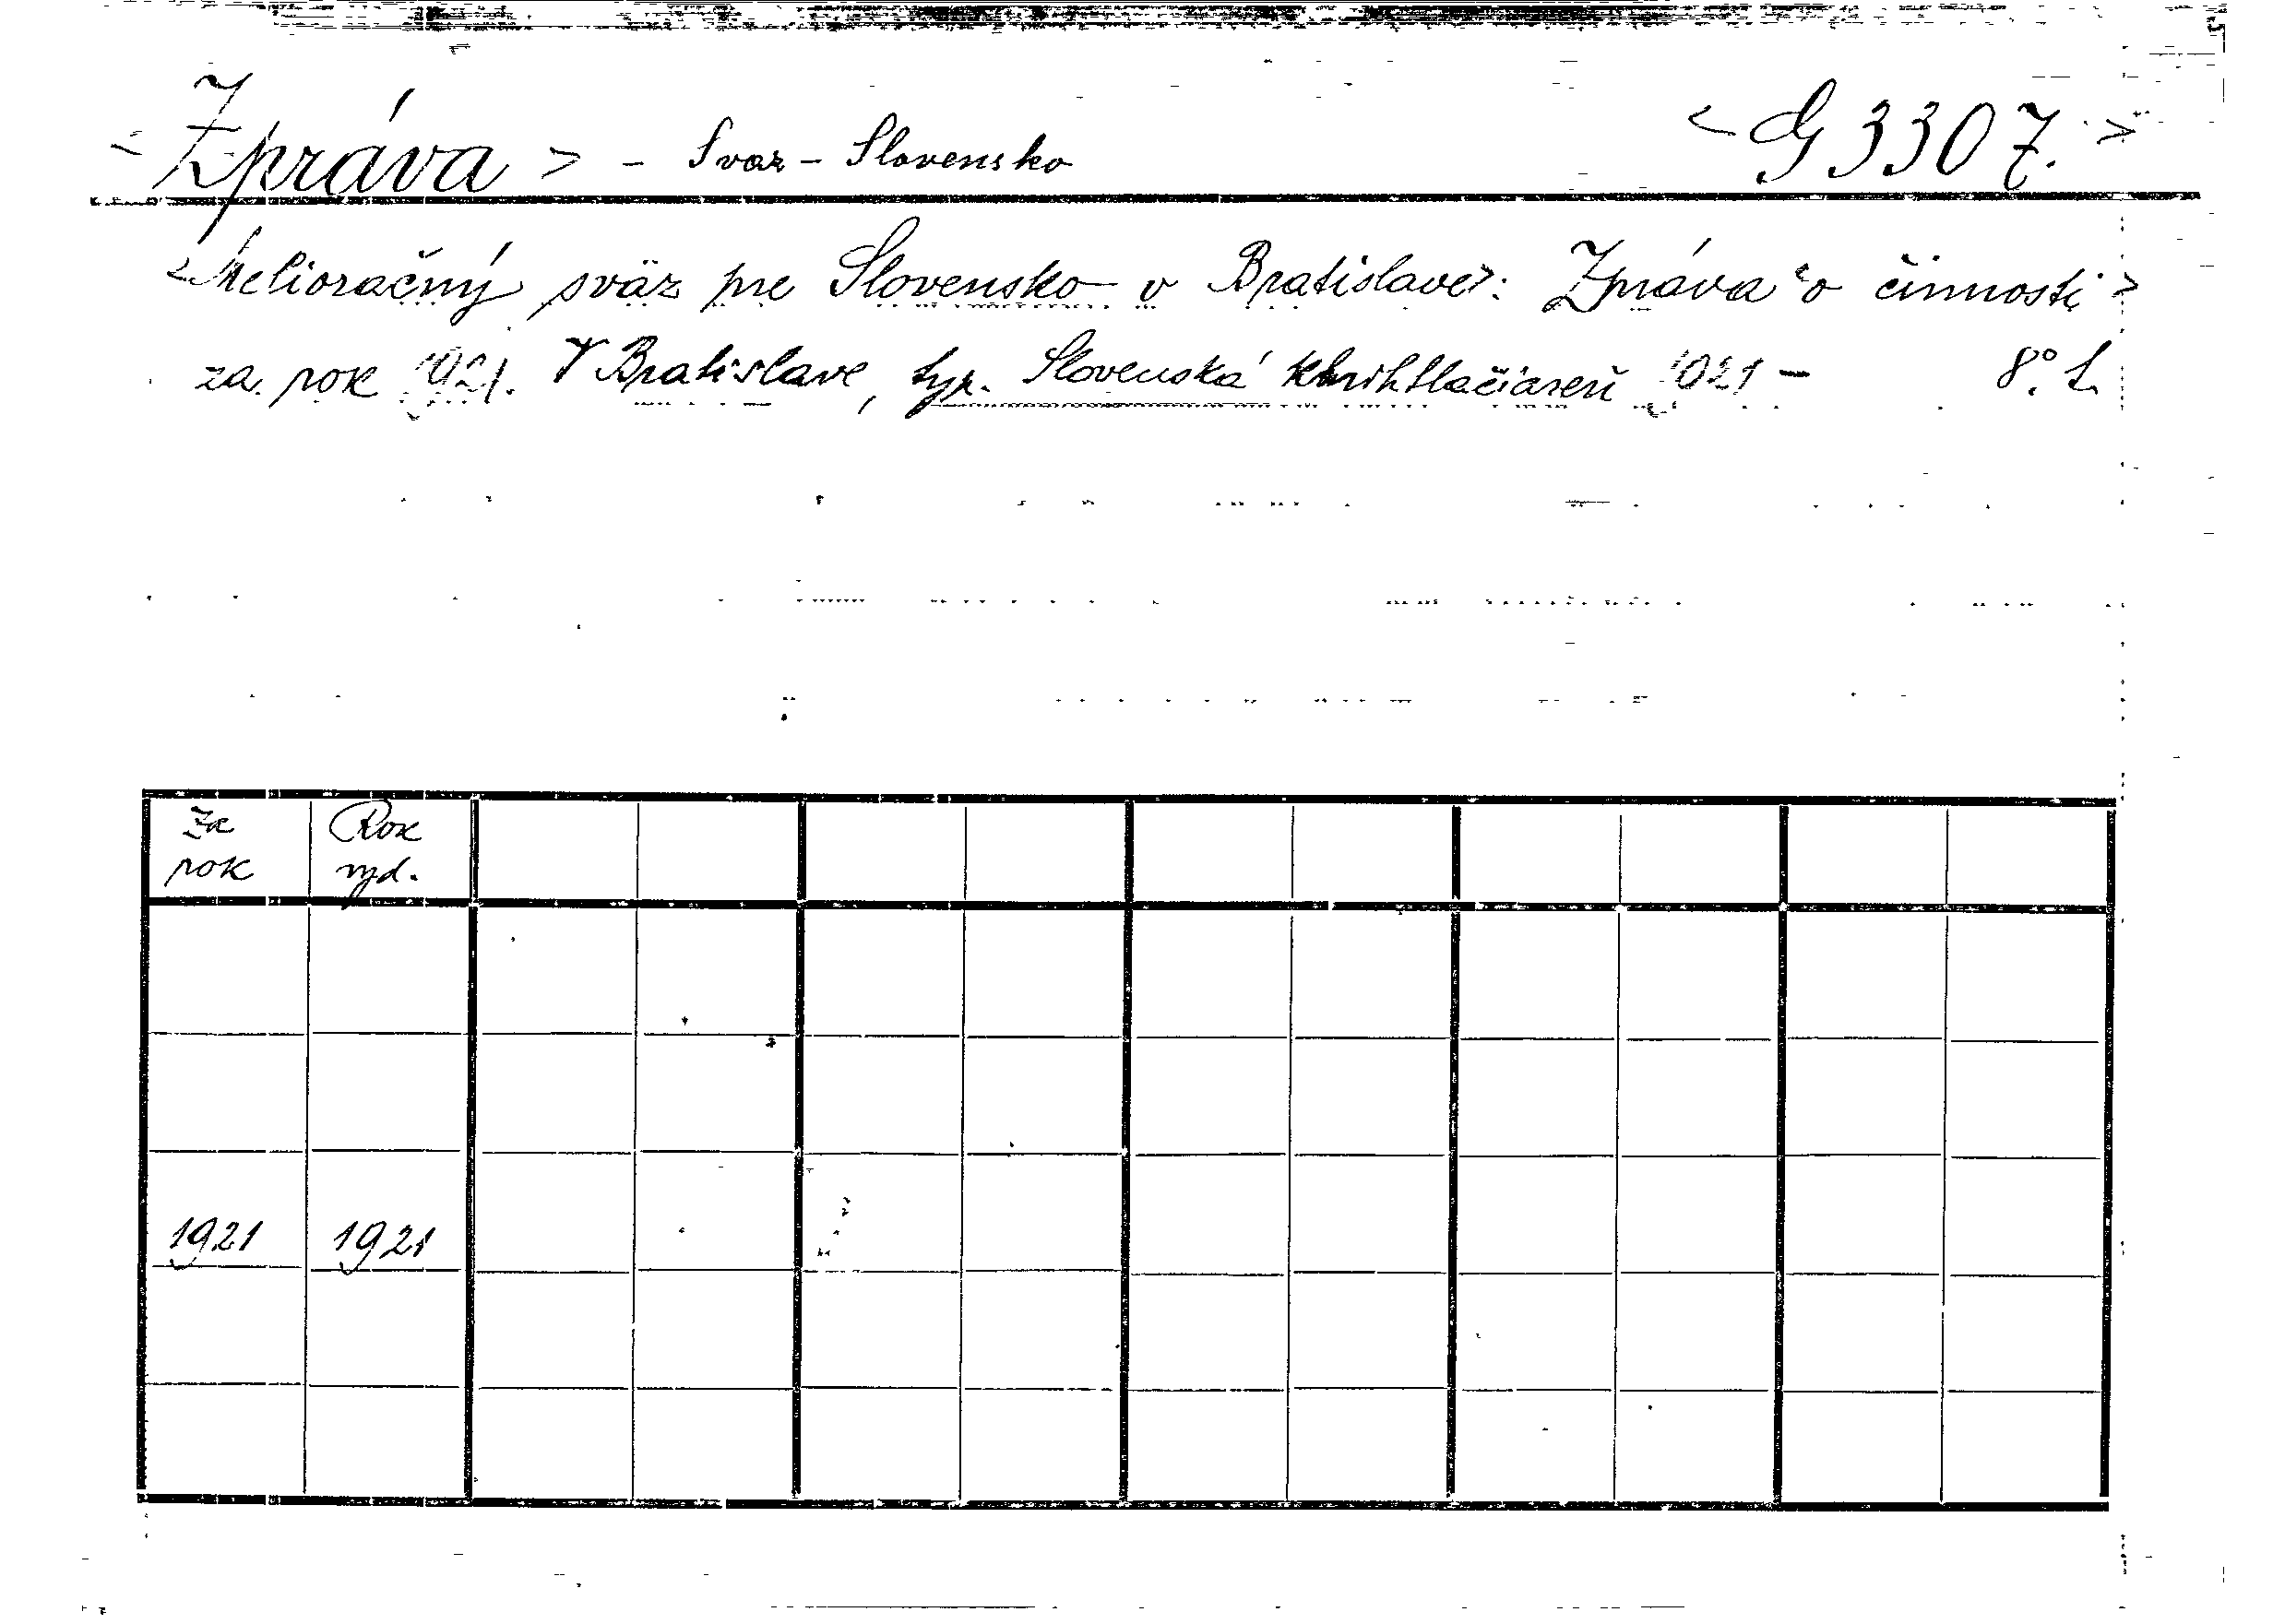 <Zpráva> - Svaz - Slovensko <G 3307.>
<Melioračný sväz pre Slovensko v Bratislave>: Zpráva o činnosti>
za rok 1921. V Bratislave, typ. Slovenská kníhtlačiareň 1921 - 8°. L.
Za rok Rok vyd.
1921 1921